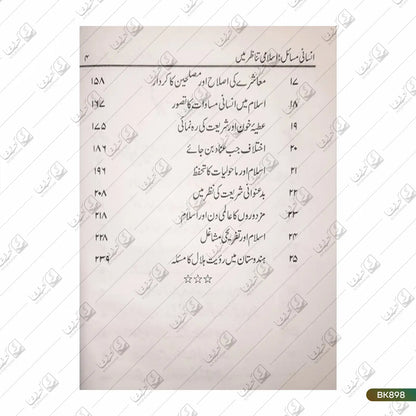 انسانی مسائل؛ اسلامی تناظر میں ۴
۱۷ معاشرے کی اصلاح اور مصلحین کا کردار ۱۵۸
۱۸ اسلام میں انسانی مساوات کا تصور ۱۶۷
۱۹ عطیۂ خون اور شریعت کی رہ نمائی ۱۷۵
۲۰ اختلاف جب عناد بن جائے ۱۸۶
۲۱ اسلام اور ماحولیات کا تحفظ ۱۹۶
۲۲ بدعنوانی شریعت کی نظر میں ۲۰۸
۲۳ مزدوروں کا عالمی دن اور اسلام ۲۱۸
۲۴ اسلام اور تفریحی مشاغل ۲۲۸
۲۵ ہندوستان میں رؤیت ہلال کا مسئلہ ۲۳۹
☆☆☆
BK898